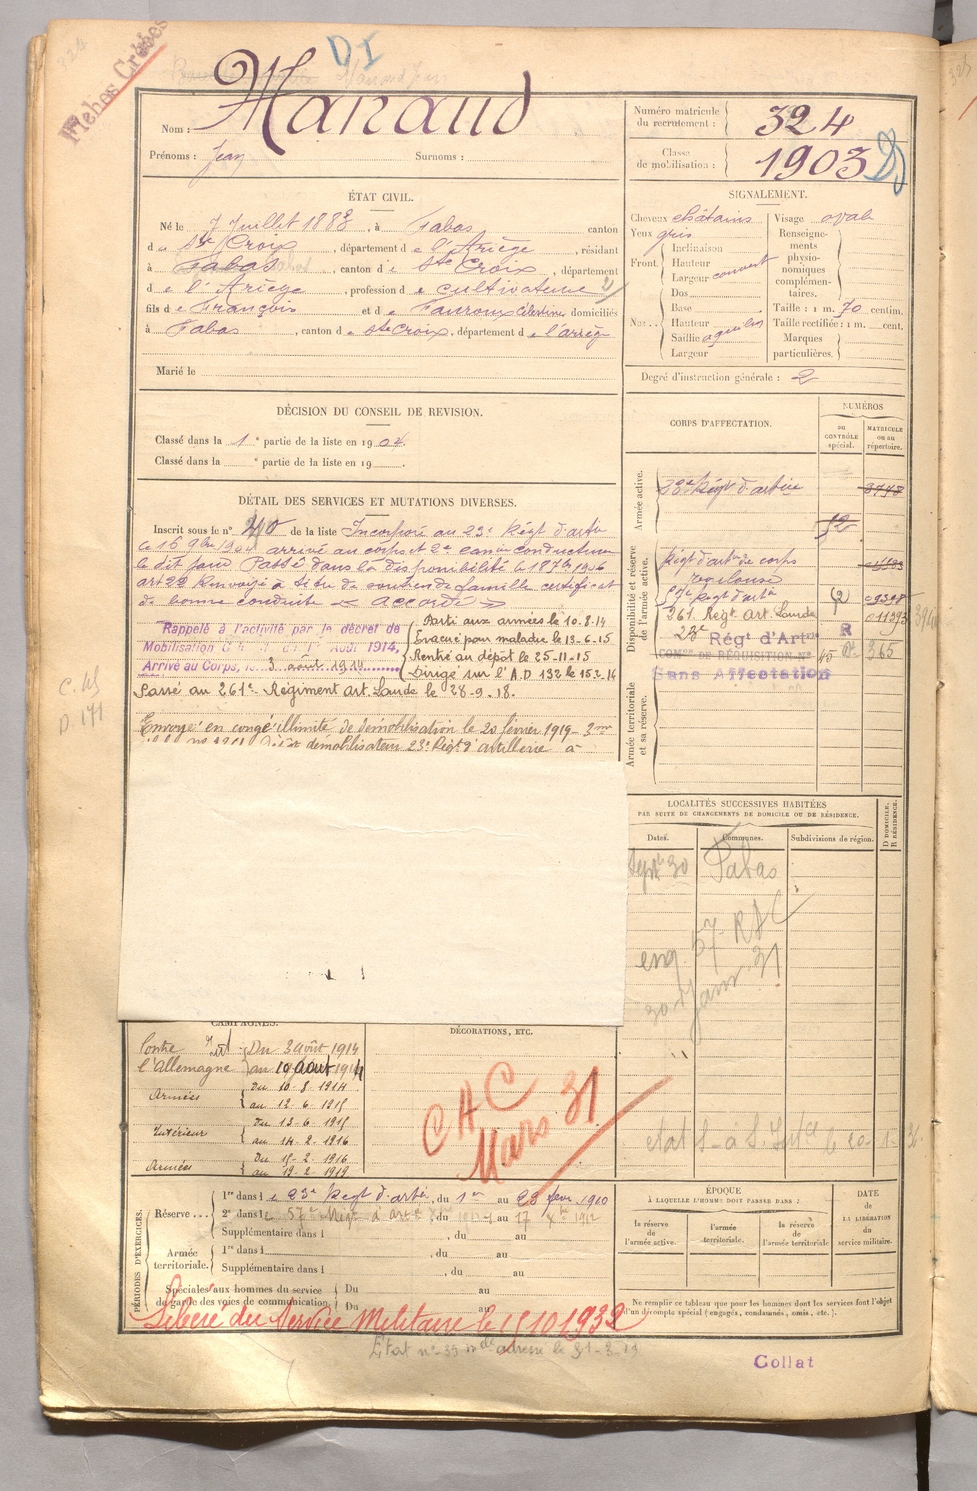 324
Fichas Croisées
DI
Manaud Jean
Nom : Manaud
Prénoms : Jean Surnoms :
Numéro matricule du recrutement : 324
Classe de mobilisation : 1903
ÉTAT CIVIL.
Né le 7 Juillet 1883, à Fabas canton
d e Ste Croix, département d e l'Ariège, résidant
à Fabas, canton d e Ste Croix, département
d e l'Ariège, profession d e cultivateur 2
fils d e François et d e Fauroux Célestine domiciliés
à Fabas, canton d e Ste Croix, département d e l'Ariège
Marié le
SIGNALEMENT.
Cheveux châtains
Yeux gris
Front. Inclinaison
Hauteur
Largeur couvert
Nez. Dos
Base
Hauteur
Saillie aquilin
Largeur
Visage ovale
Renseignements physionomiques complémentaires.
Taille : 1 m. 70 centim.
Taille rectifiée : 1 m. cent.
Marques particulières.
Degré d'instruction générale : 2
DÉCISION DU CONSEIL DE REVISION.
Classé dans la 1e partie de la liste en 1904.
Classé dans la e partie de la liste en 19 .
DÉTAIL DES SERVICES ET MUTATIONS DIVERSES.
Inscrit sous le n° 40 de la liste Incorporé au 23e Régt d'artie
le 16 9bre 1904 arrivé au corps et 2e canonnier conducteur
le dit jour Passé dans la disponibilité le 18 7bre 1906
art 22 Renvoyé à titre de soutien de famille certificat
de bonne conduite « accordé »
Rappelé à l'activité par le décret de
Mobilisation Générale du 1er Août 1914,
Arrivé au Corps, le 3 août 1914
Parti aux armées le 10.8.14
Evacué pour maladie le 13-6-15
Rentré au dépot le 25-11-15
Dirigé sur l'A.D 132 le 15-2-16
Passé au 261e Régiment Art. Lourde le 28-9-18.
Envoyé en congé illimité de démobilisation le 20 février 1919 - 3me
démobilisateur 23e Régt d'artillerie à
C. 45
D. 171
CORPS D'AFFECTATION.
NUMÉROS
au CONTRÔLE spécial.
MATRICULE ou au répertoire.
Armée active.
23e Régt d'artiie
3748
52
Disponibilité et réserve de l'armée active.
Régt d'artie de corps
Toulouse
57e Régt d'artie
09398
261 Régt Art. Lourde
011393
23e Régt d'Artie
R
365
COMon DE RÉQUISITION N° 45
Sans Affectation
Armée territoriale et sa réserve.
LOCALITÉS SUCCESSIVES HABITÉES
PAR SUITE DE CHANGEMENTS DE DOMICILE OU DE RÉSIDENCE.
Dates. Communes. Subdivisions de région.
D DOMICILE, R RÉSIDENCE.
Septre 30 Fabas
eng. 57 RAC
20 Janv 31
CAMPAGNES.
Contre l'Allemagne
Int
Du 3 août 1914
au 10 août 1914
Armées
Du 10-8-1914
au 12-6-1915
Intérieur
Du 13-6-1915
au 14-2-1916
Armées
Du 15-2-1916
au 19-2-1919
DÉCORATIONS, ETC.
CAC
Mars 31
PÉRIODES D'EXERCICES.
Réserve...
1re dans l e 23e Regt d'artie, du 1er au 23 fevr. 1910
2e dans l e 57e Régt d'artie, du au 17 Xbre 1912
Supplémentaire dans l , du au
Armée territoriale.
1re dans l , du au
Supplémentaire dans l , du au
Spéciales aux hommes du service de garde des voies de communication.
Du au
Du au
Libéré du Service Militaire le 15.10.1932
ÉPOQUE
À LAQUELLE L'HOMME DOIT PASSER DANS :
la réserve de l'armée active.
l'armée territoriale.
la réserve de l'armée territoriale
DATE DE LA LIBÉRATION du service militaire.
Ne remplir ce tableau que pour les hommes dont les services font l'objet
d'un décompte spécial (engagés, condamnés, omis, etc.).
Collat